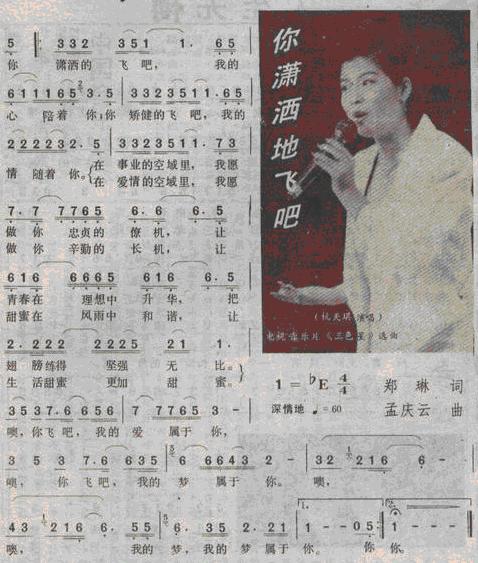 你潇洒地飞吧
(杭天琪演唱)
电视音乐片《三色星》选曲
1=♭E 4/4
郑琳 词
深情地 ♩=60
孟庆云 曲
5 332 351 1. 65
你 潇洒的 飞吧, 我的
611165 3.5 3323511.65
心 陪着 你,你 矫健的飞 吧,我的
2222232.5 3323511.73
情 随着 你。 在 事业的空域里, 我愿
在 爱情的空域里, 我愿
7.7 7765 6.6 6.5
做你 忠贞的 僚机, 让
做你 辛勤的 长机, 让
616 6665 616 6.5
青春在 理想中 升华, 把
甜蜜在 风雨中 和谐, 让
2.222 2255 21 1.
翅 膀练得 坚强 无 比。
生 活甜蜜 更加 甜 蜜。
3537.6656 7 77653 -
噢,你飞吧,我的 爱 属于 你,
3 5 3 7.6 635 6 66432 - 32 216 6 -
噢, 你 飞吧, 我的 梦 属于 你。 噢,
43 216 6. 55 6. 35 2.21 1 - - 05 1 - - -
噢, 我的 梦,我的 梦 属于 你。 你 你。